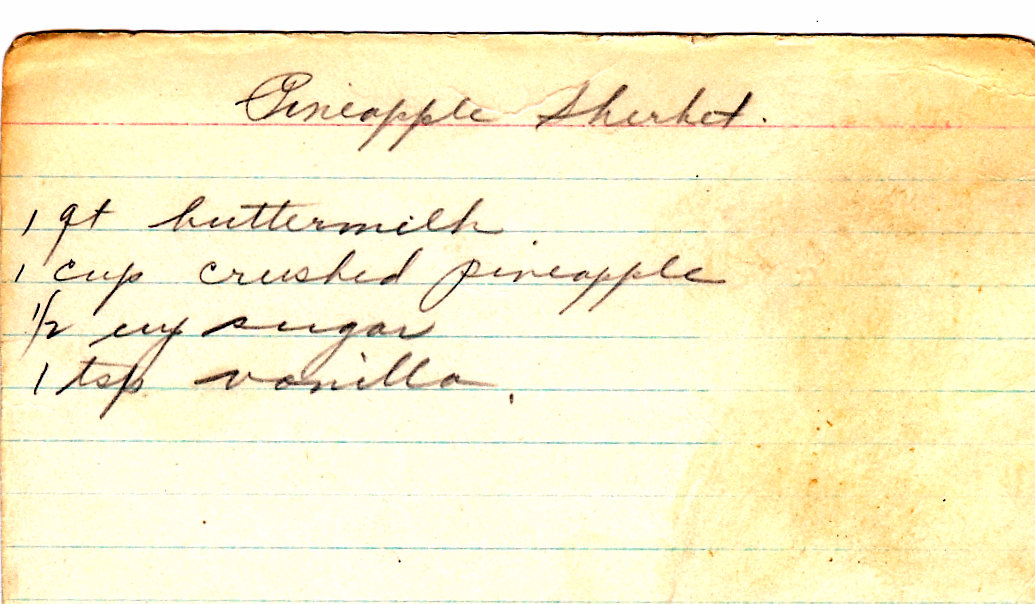 Pineapple Sherbet.
1 qt buttermilk
1 cup crushed pineapple
1/2 cup sugar
1 tsp vanilla.